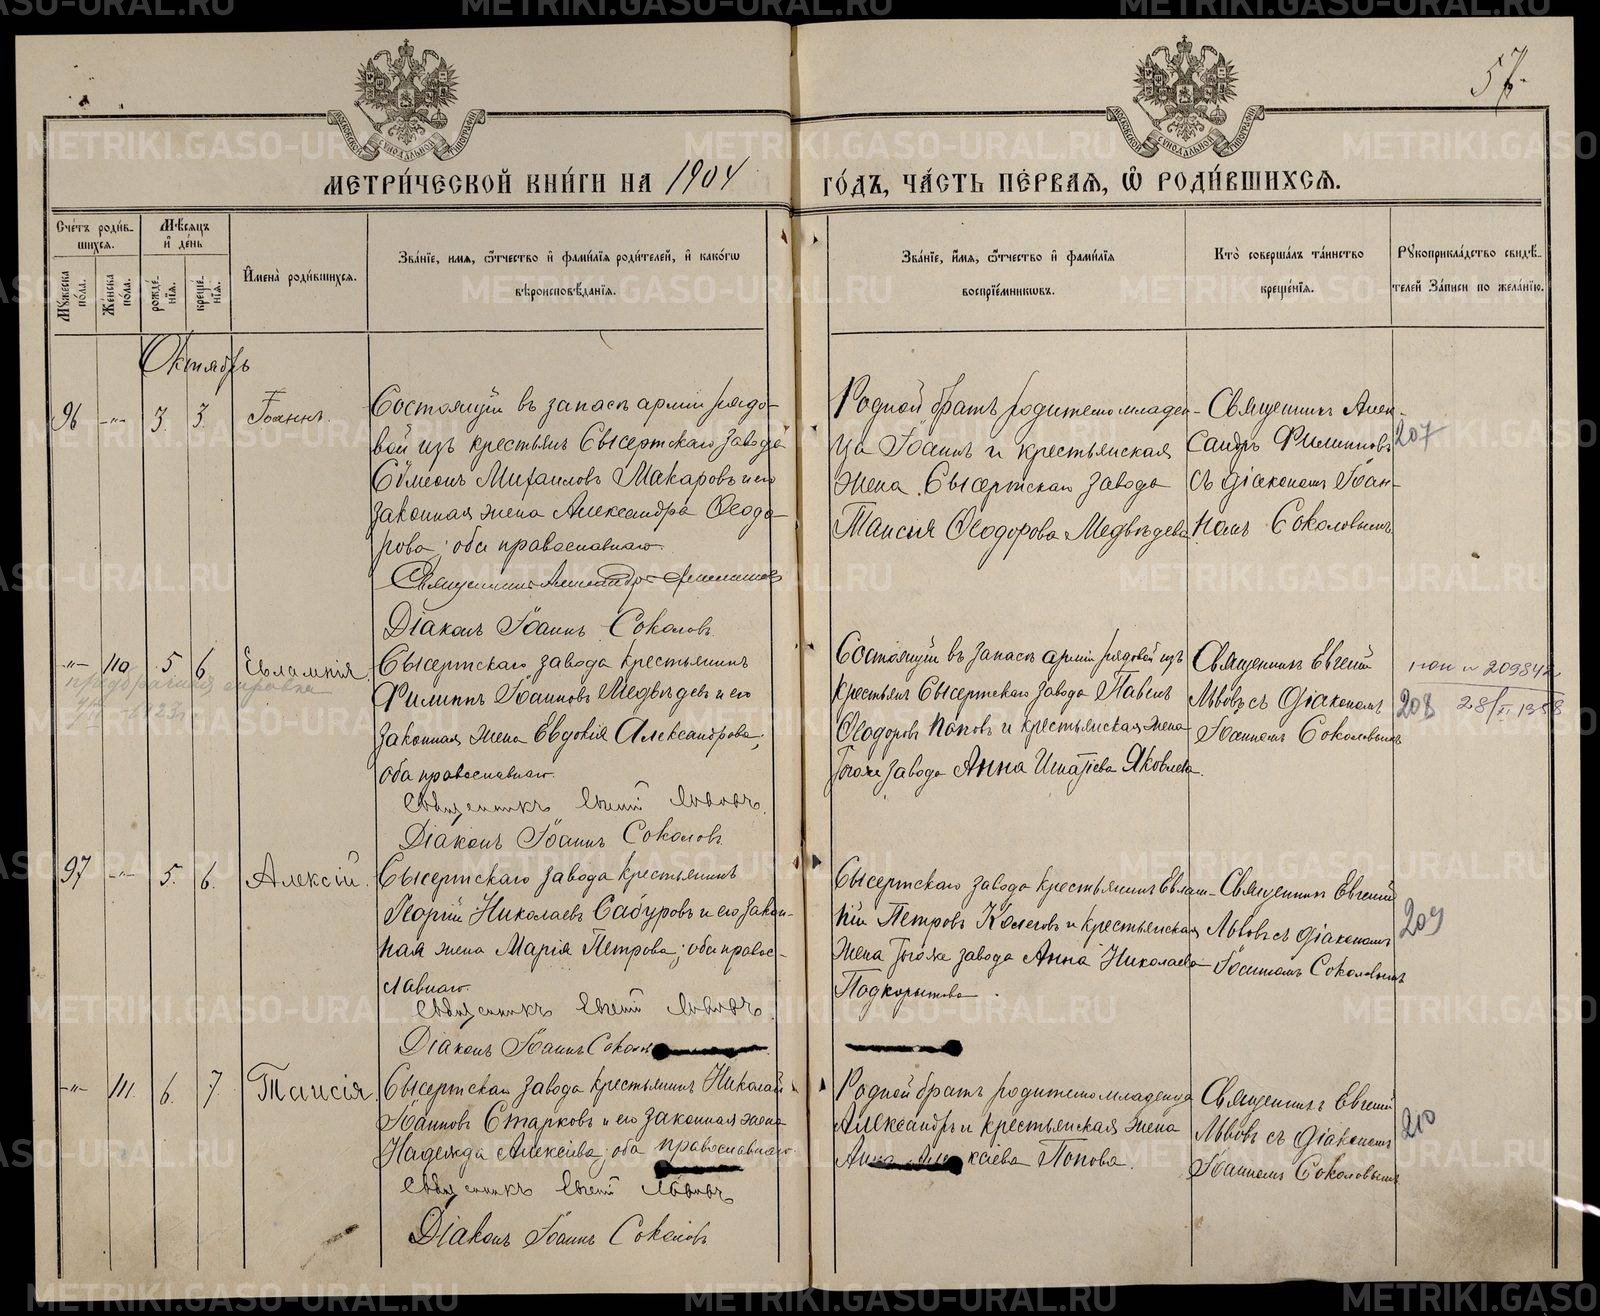 57.
МЕТРИ́ЧЕСКОЙ КНИ́ГИ НА 1904 ГО́ДЪ, ЧА́СТЬ ПЕ́РВАѦ, Ѡ҆ РОДИ́ВШИХСѦ.
Сче́тъ роди́в-
шихсѧ.
Мѣ́сѧцъ
и҆ де́нь
Мꙋжеска
по́ла.
Же́нска
по́ла.
рожде́-
нїѧ.
креще́-
нїѧ.
И҆мена̀ роди́вшихсѧ.
Зва́нїе, имѧ, ѻ҆́тчество и҆ фами́лїѧ роди́телей, и҆ како́гѡ
вѣроисповѣ́данїѧ.
Зва́нїе, и҆́мѧ, ѻ҆́тчество и҆ фами́лїѧ
воспрїе́мникѡвъ.
Кто̀ соверша́лъ та́инство
креще́нїѧ.
Рꙋкоприкла́дство свидѣ́-
телей За́писи по жела́нїю.
Октябрь
96 -"- 3. 3. Іоаннъ.
Состоящій въ запасѣ арміи рядо-
вой изъ крестьянъ Сысертскаго завода
Сѷмеонъ Михаиловъ Макаровъ и его
законная жена Александра Ѳеодо-
рова; оба православнаго.
Священникъ Александръ Филипповъ
Діаконъ Іоаннъ Соколовъ.
Родной братъ родителю младен-
ца Іоаннъ и крестьянская
жена Сысертскаго завода
Таисія Ѳеодорова Медвѣдева
Священникъ Алек-
сандръ Филипповъ
съ діакономъ Іоан-
номъ Соколовымъ.
207
-"- 110 5 6 Евлампія.
Сысертскаго завода крестьянинъ
Филиппъ Іоанновъ Медвѣдевъ и его
законная жена Евдокія Александрова;
оба православнаго.
Священникъ Евгеній Львовъ.
Діаконъ Іоаннъ Соколовъ.
Состоящій въ запасѣ арміи рядовой изъ
крестьянъ Сысертскаго завода Павелъ
Ѳеодоровъ Поповъ и крестьянская жена
тогоже завода Анна Игнатіева Яковлева.
Священникъ Евгеній
Львовъ съ діакономъ
Іоанномъ Соколовымъ
208
209842
97 -"- 5. 6. Алексій.
Сысертскаго завода крестьянинъ
Георгій Николаевъ Сабуровъ и его закон-
ная жена Марія Петрова; оба правос-
лавнаго.
Священникъ Евгеній Львовъ.
Діаконъ Іоаннъ Соколовъ
Сысертскаго завода крестьянинъ Евлам-
пій Петровъ Колеговъ и крестьянская
жена тогоже завода Анна Николаева
Подкорытова.
Священникъ Евгеній
Львовъ съ діакономъ
Іоанномъ Соколовымъ
209
-"- 111. 6. 7. Таисія.
Сысертскаго завода крестьянинъ Николай
Іоанновъ Старковъ и его законная жена
Надежда Алексіева; оба православнаго.
Священникъ Евгеній Львовъ
Діаконъ Іоаннъ Соколовъ.
Родной братъ родителю младенца
Александръ и крестьянская жена
Анна Алексіева Попова.
Священникъ Евгеній
Львовъ съ діакономъ
Іоанномъ Соколовымъ
210
METRIKI.GASO-URAL.RU